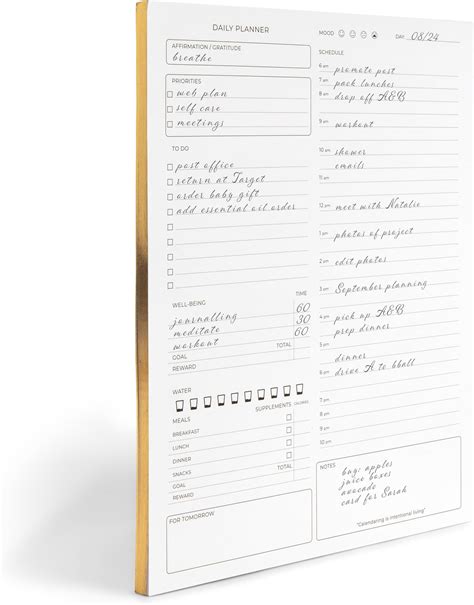 DAILY PLANNER
MOOD
DAY: 08/24
AFFIRMATION / GRATITUDE
breathe
PRIORITIES
web plan
self care
meetings
TO DO
post office
return at Target
order baby gift
add essential oil order
WELL-BEING TIME
journalling 60
meditate 30
workout 60
GOAL TOTAL
REWARD
WATER
MEALS SUPPLEMENTS CALORIES
BREAKFAST
LUNCH
DINNER
SNACKS TOTAL
GOAL
REWARD
FOR TOMORROW
SCHEDULE
6 am promote post
7 am pack lunches
8 am drop off A&B
9 am workout
10 am shower
emails
11 am
12 pm meet with Natalie
1 pm photos of project
2 pm edit photos
3 pm September planning
4 pm pick up A&B
prep dinner
5 pm dinner
6 pm drive A to bball
7 pm
8 pm
9 pm
10 pm
NOTES
buy: apples
juice boxes
avocado
card for Sarah
"Calendaring is intentional living"